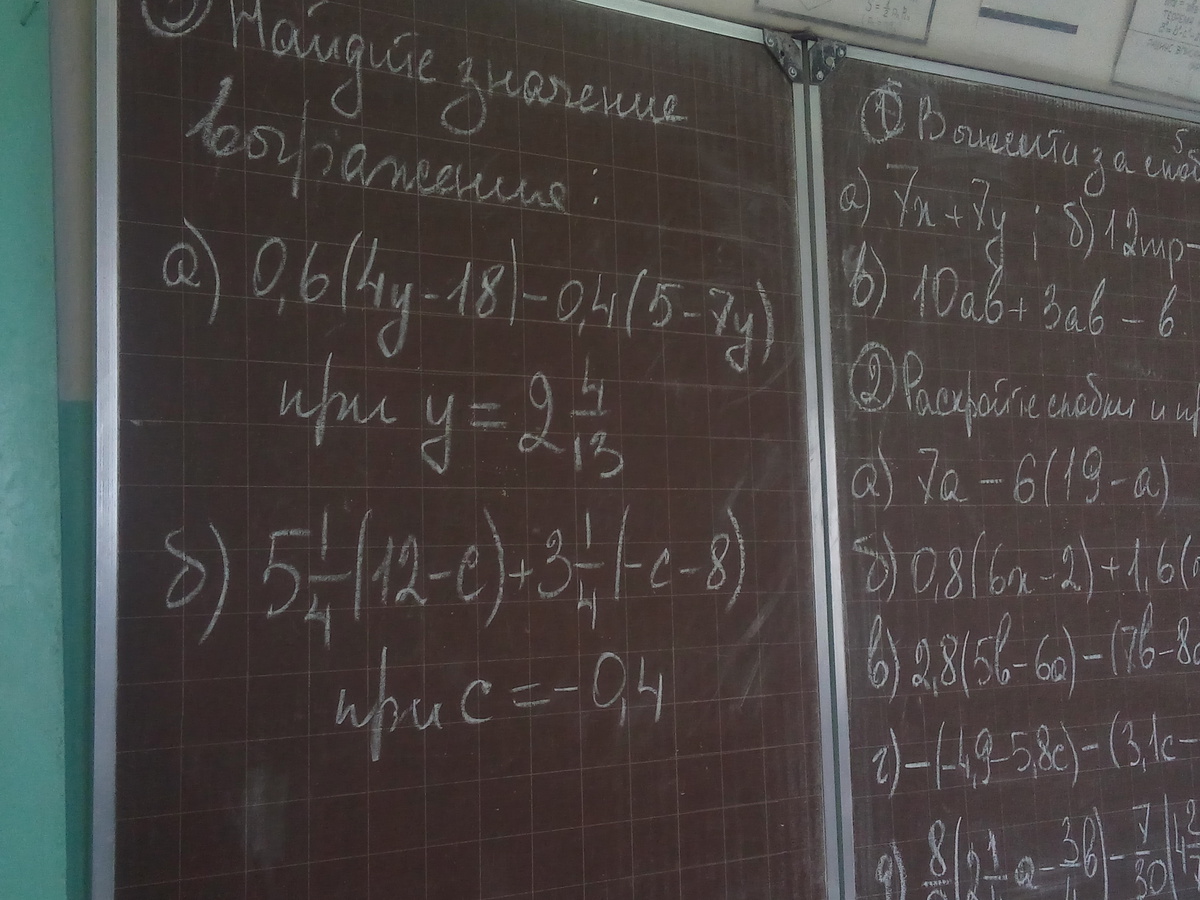 ③ Найдите значение
выражения:
а) 0,6(4y-18)-0,4(5-7y)
при y = 2 4/13
б) 5 1/4 (12-c)+3 1/4 (-c-8)
при c = -0,4
① Вынести за
а) 7x+7y; б) 12mp-
в) 10ab+3ab-b
② Раскройте скобки и
а) 7a-6(19-a)
б) 0,8(6x-2)+1,6(
в) 2,8(5b-6a)-(7b-8
г) -(-4,9-5,8c)-(3,1c-